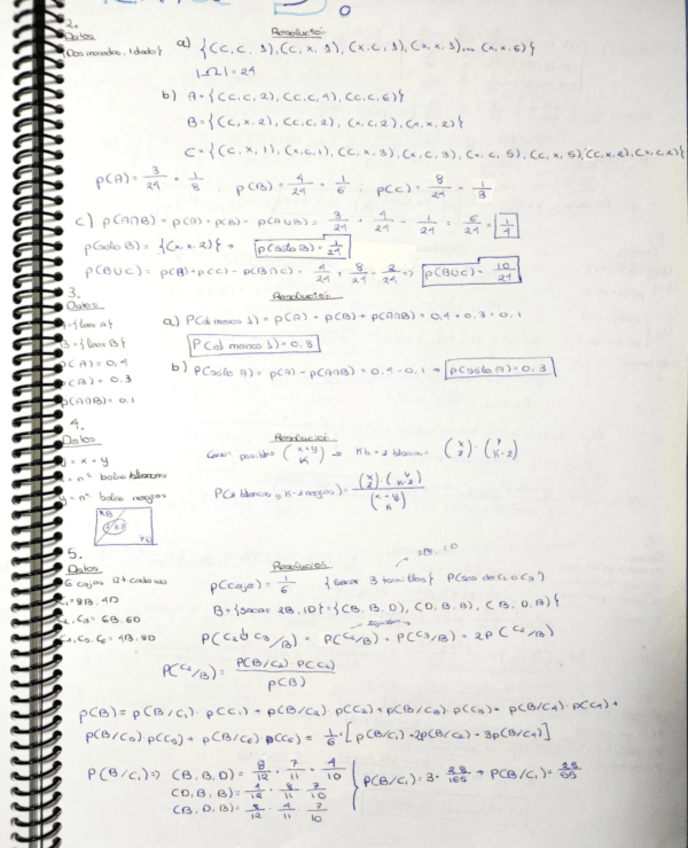 2.
Datos
Resolución
{Dos monedas, 1 dado}
a) {(C,C, 1), (C, X, 1), (X,C, 1), (X, X, 1)... (X, X, 6)}
|Ω| = 24
b) A = {(C,C, 2), (C,C, 4), (C,C, 6)}
B = {(C, X, 2), (C,C, 2), (X,C, 2), (X, X, 2)}
C = {(C, X, 1), (X,C, 1), (C, X, 3), (X,C, 3), (X,C, 5), (C, X, 5), (C,X,2), (X,C,2)}
p(A) = 3/24 = 1/8 ; p(B) = 4/24 = 1/6 ; p(C) = 8/24 = 1/3
c) p(A∩B) = p(A) + p(B) - p(A∪B) = 3/24 + 4/24 - 1/24 = 6/24 = 1/4
p(sólo B) = {(X,X,2)} → p(sólo B) = 1/24
p(B∪C) = p(B) + p(C) - p(B∩C) = 4/24 + 8/24 - 2/24 => p(B∪C) = 10/24
3.
Datos
Resolución
A = {leer A}
B = {leer B}
p(A) = 0,4
p(B) = 0,3
p(A∩B) = 0,1
a) P(al menos 1) = p(A) + p(B) + p(A∩B) = 0,4 + 0,3 + 0,1
P(al menos 1) = 0,8
b) P(sólo A) = p(A) - p(A∩B) = 0,4 - 0,1 → p(sólo A) = 0,3
4.
Datos
Resolución
= x + y
= nº bolas blancas
y = nº bolas negras
Casos posibles (x+y K) → (x 2) · (y K-2)
P(2 blancas y K-2 negras) = (x 2) · (y K-2) / (x+y K)
5.
Datos
Resolución
6 cajas 12 t cada una
C₁ = 8B, 4D
C₂, C₃ = 6B, 6D
C₄, C₅, C₆ = 4B, 8D
2B, 1D
p(caja) = 1/6 {sacar 3 tornillos} P(sea de C₂ o C₃)
B = {sacar 2B, 1D} = {(B, B, D), (D, B, B), (B, D, B)}
P(C₂ ∪ C₃/B) = P(C₂/B) + P(C₃/B) = 2P(C₂/B)
P(C₂/B) = P(B/C₂) · P(C₂) / p(B)
p(B) = p(B/C₁) · p(C₁) + p(B/C₂) · p(C₂) + p(B/C₃) · p(C₃) + p(B/C₄) · p(C₄) +
p(B/C₅) · p(C₅) + p(B/C₆) · p(C₆) = 1/6 · [p(B/C₁) + 2p(B/C₂) + 3p(B/C₄)]
P(B/C₁) => (B, B, D) = 8/12 · 7/11 · 4/10
(D, B, B) = 4/12 · 8/11 · 7/10
(B, D, B) = 8/12 · 4/11 · 7/10
P(B/C₁) = 3 · 28/165 → P(B/C₁) = 28/55